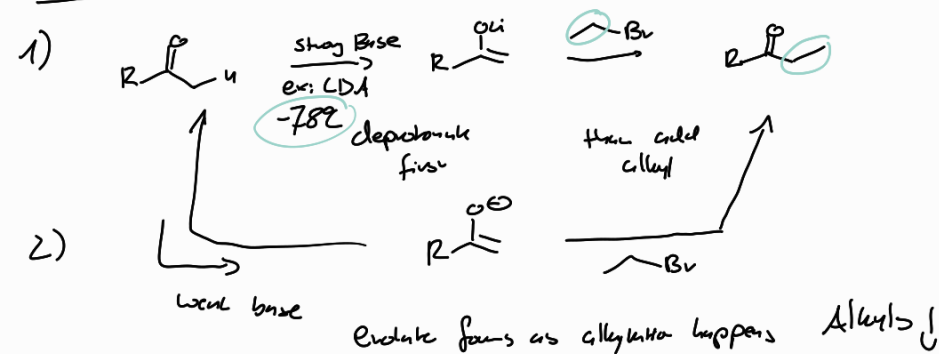 1)
O
R
H
strong Base
ex: LDA
-78°C
deprotonate
first
OLi
R
Br
then add
alkyl
O
R
2)
weak base
O⊖
R
Br
enolate forms as alkylation happens
Alkyls!